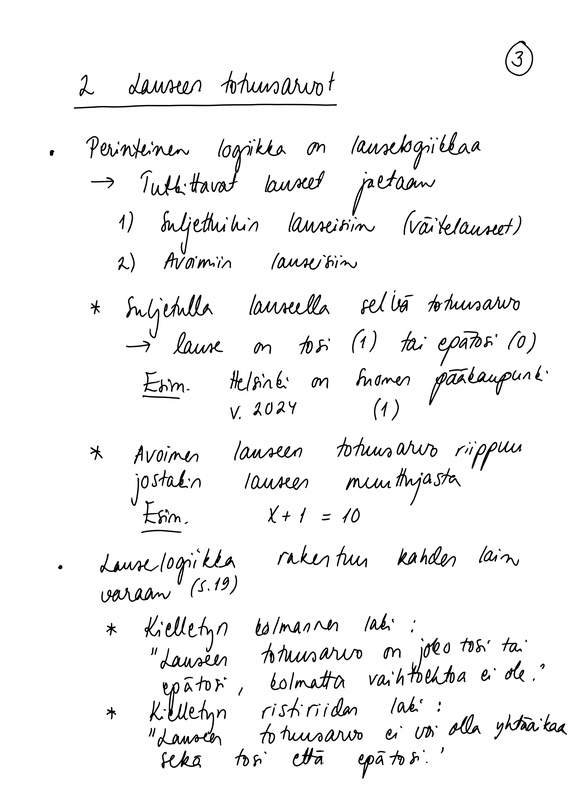 3
2 Lauseen totuusarvot
• Perinteinen logiikka on lauselogiikkaa
→ Tutkittavat lauseet jaetaan
1) Suljettuihin lauseisiin (väitelauseet)
2) Avoimiin lauseisiin
* Suljetulla lauseella selvä totuusarvo
→ lause on tosi (1) tai epätosi (0)
Esim. Helsinki on Suomen pääkaupunki
v. 2024 (1)
* Avoimen lauseen totuusarvo riippuu
jostakin lauseen muuttujasta
Esim. x + 1 = 10
• Lauselogiikka rakentuu kahden lain
varaan (s.19)
* Kielletyn kolmannen laki :
"Lauseen totuusarvo on joko tosi tai
epätosi, kolmatta vaihtoehtoa ei ole."
* Kielletyn ristiriidan laki :
"Lauseen totuusarvo ei voi olla yhtäaikaa
sekä tosi että epätosi."